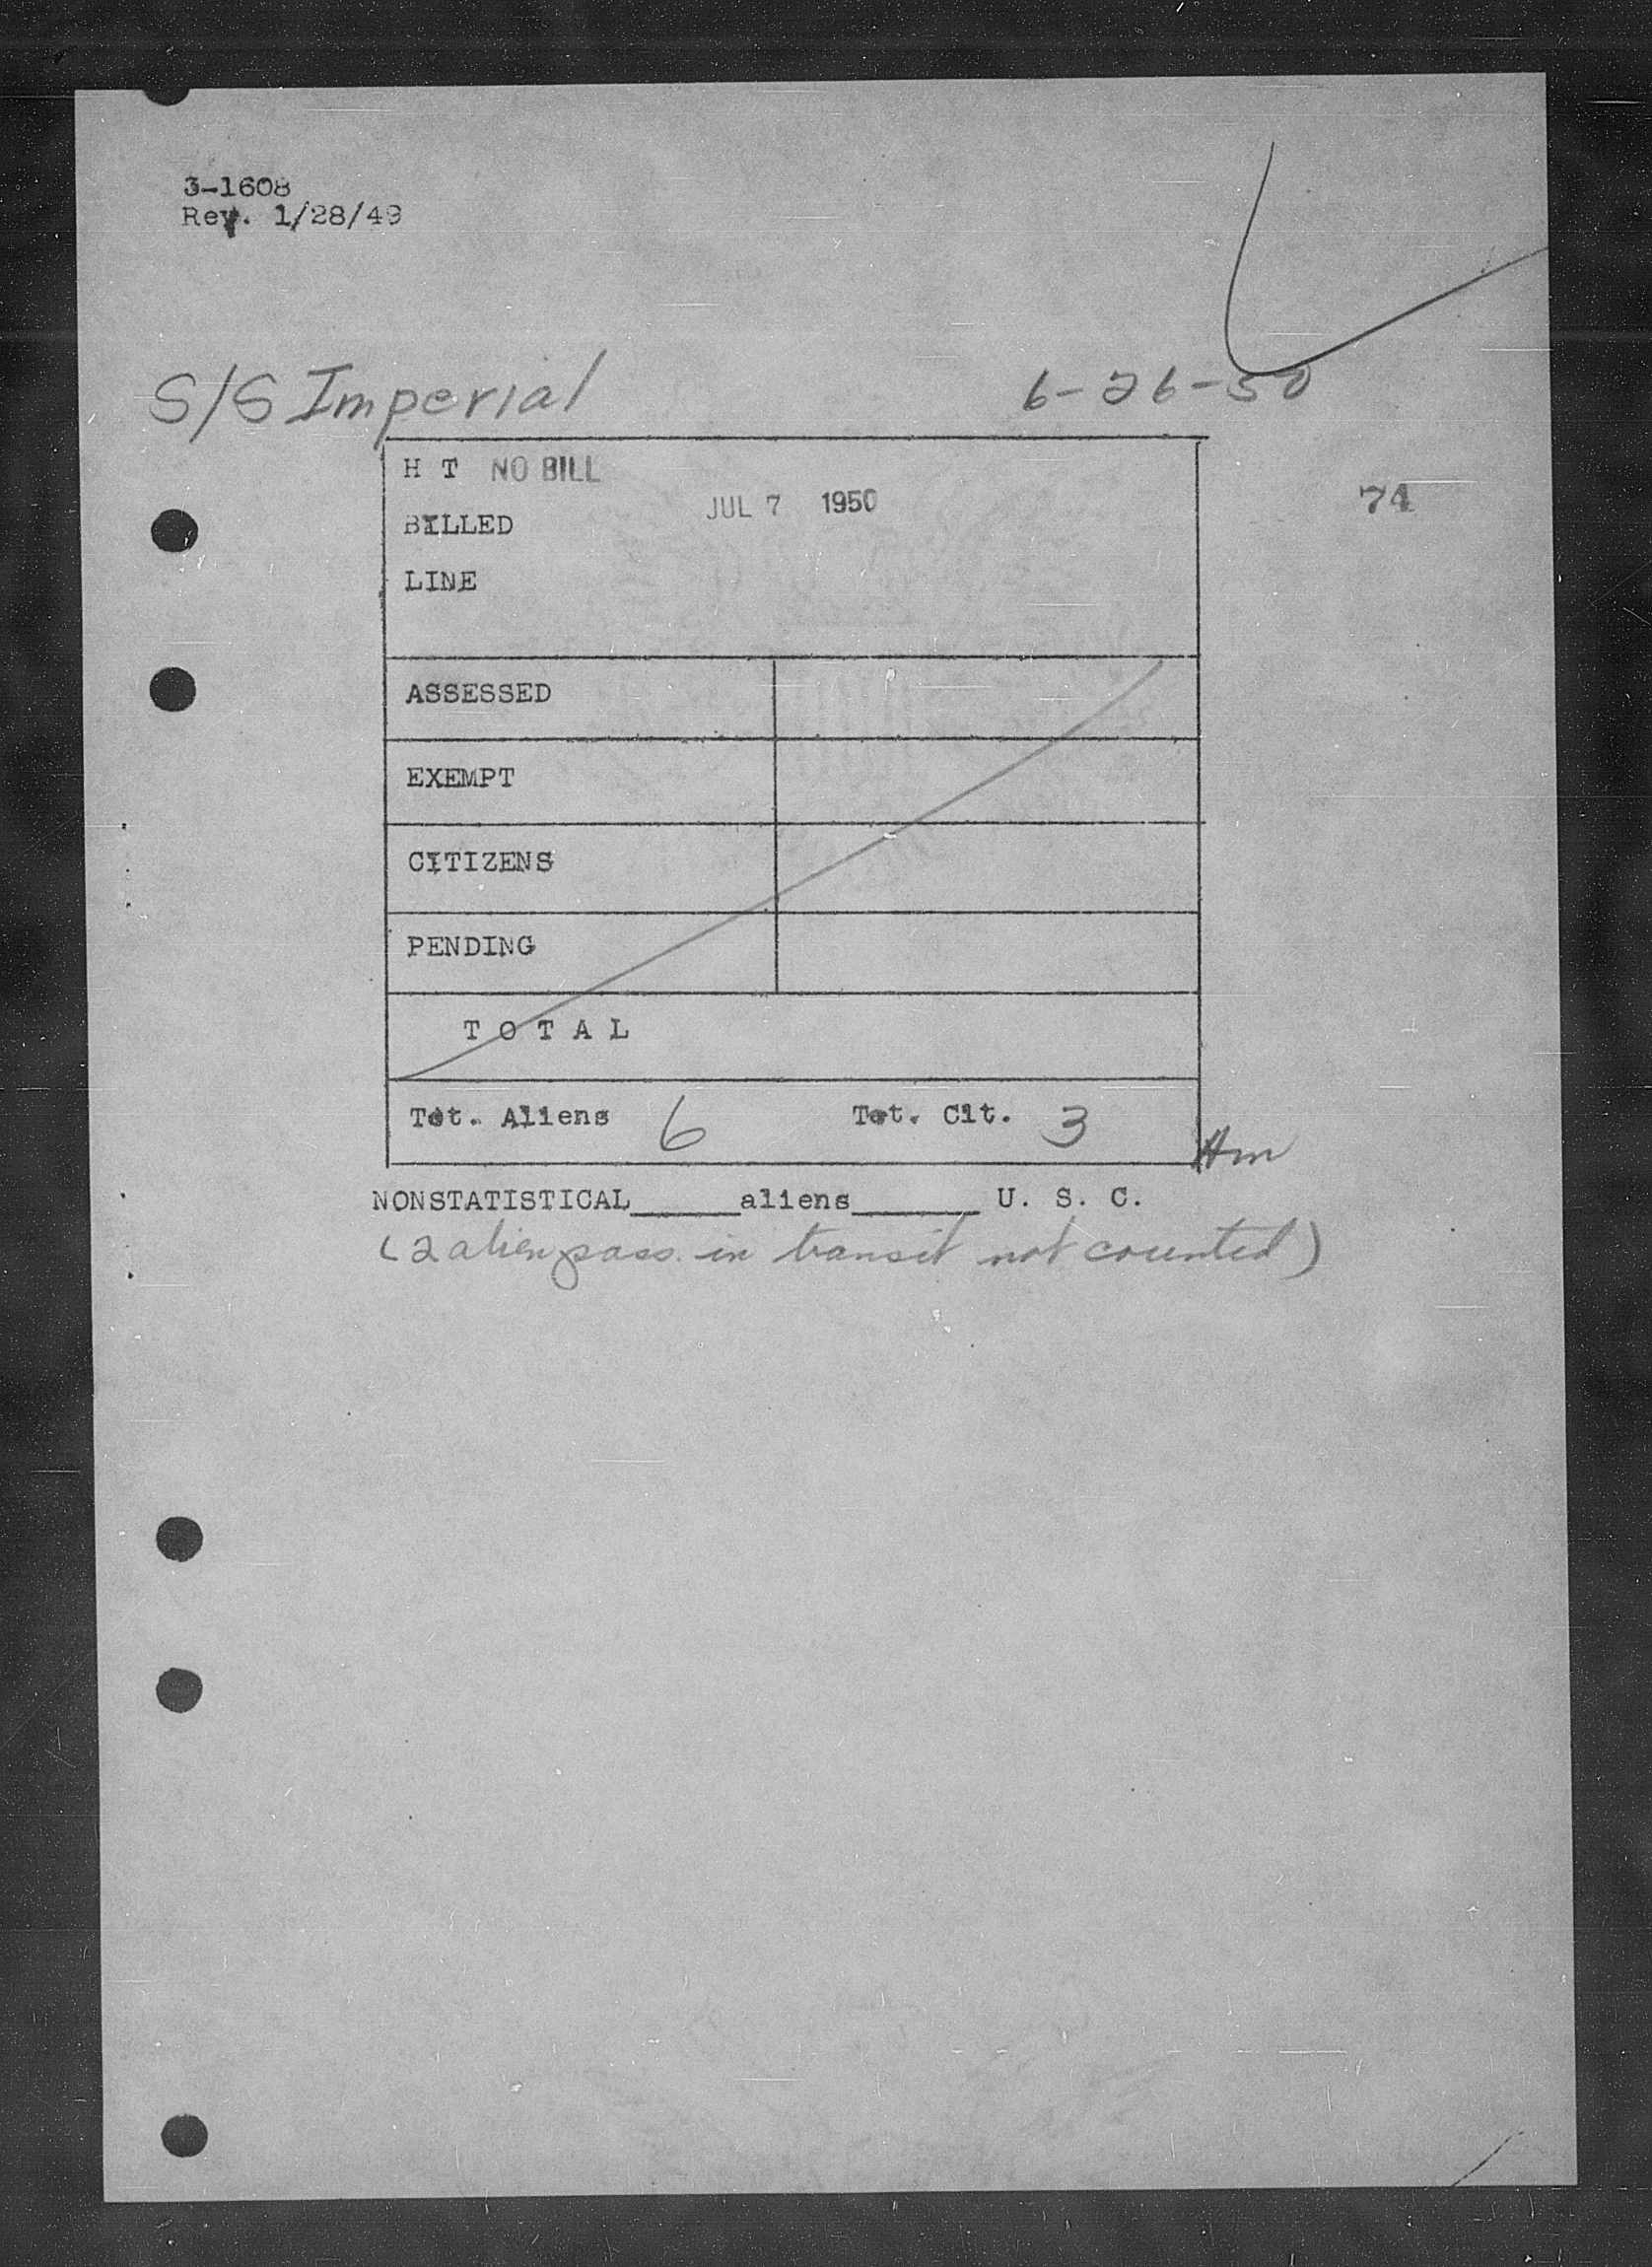 3-1608
Rev. 1/28/49
S/S Imperial 6-26-50
H T NO BILL
JUL 7 1950 74
BILLED
LINE
ASSESSED
EXEMPT
CITIZENS
PENDING
T O T A L
Tot. Aliens 6 Tot. Cit. 3
Hm
NONSTATISTICAL_____aliens______ U. S. C.
(2 alien pass. in transit not counted)